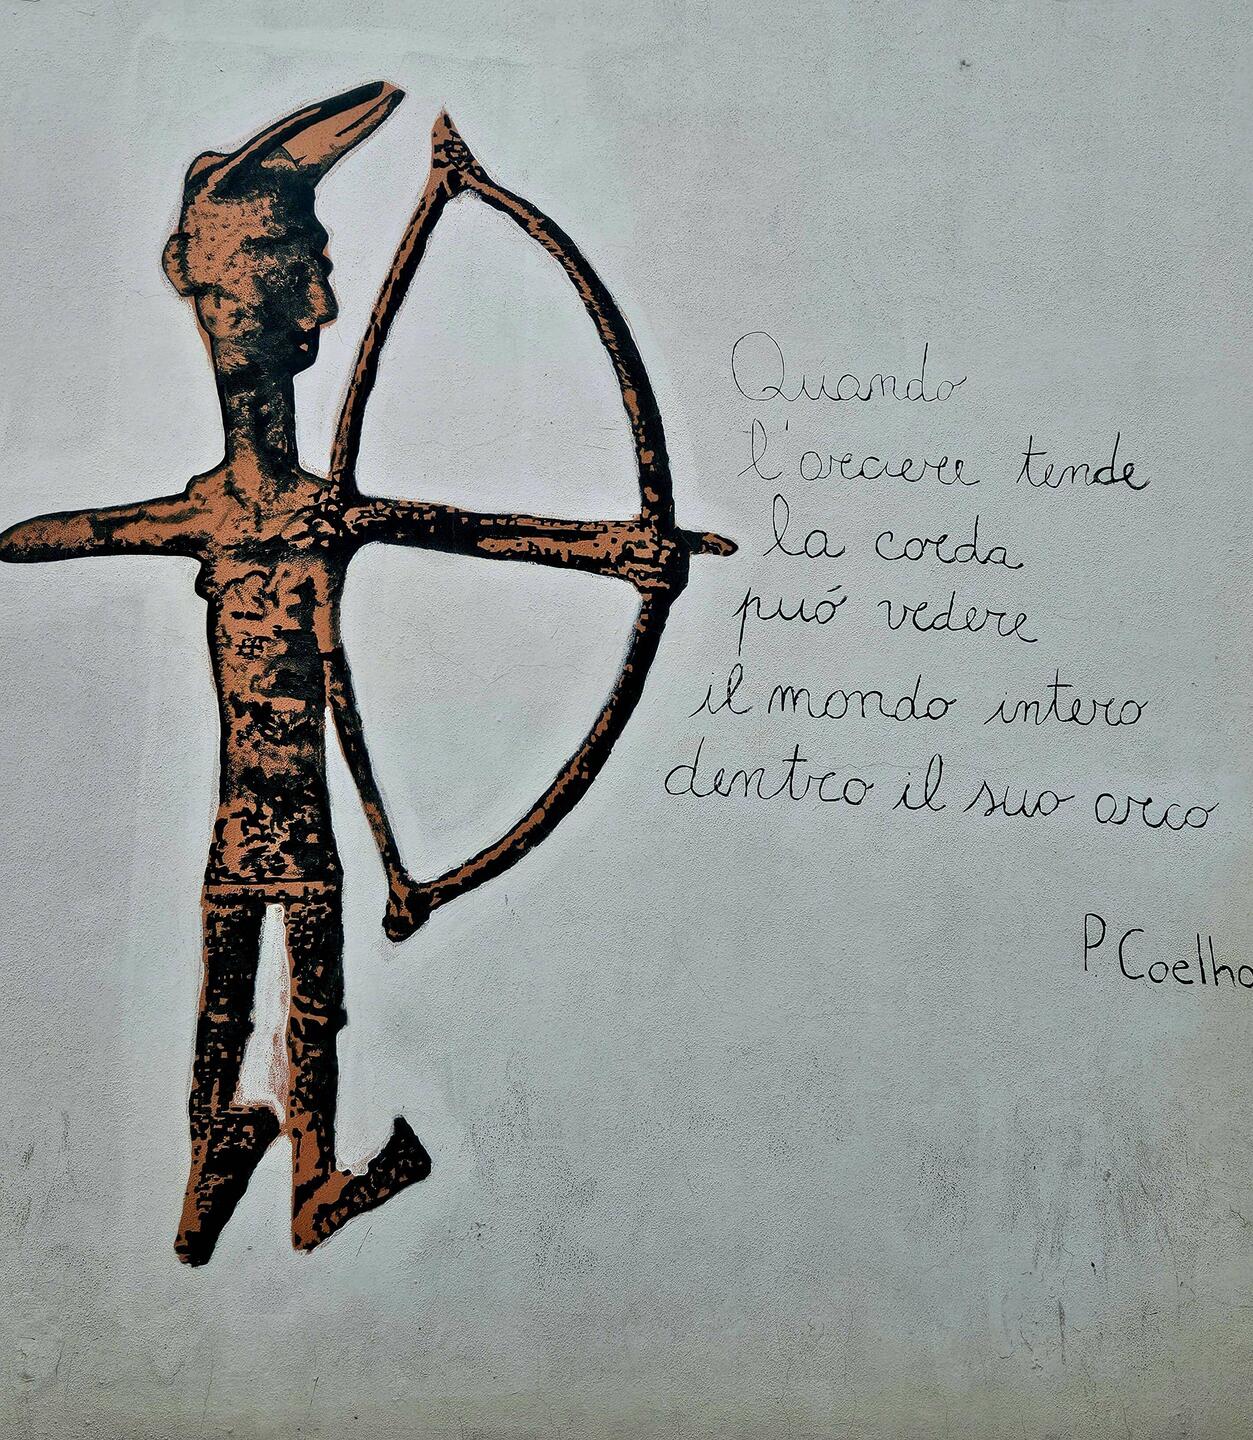 Quando
l'arciere tende
la corda
puó vedere
il mondo intero
dentro il suo arco
P. Coelho